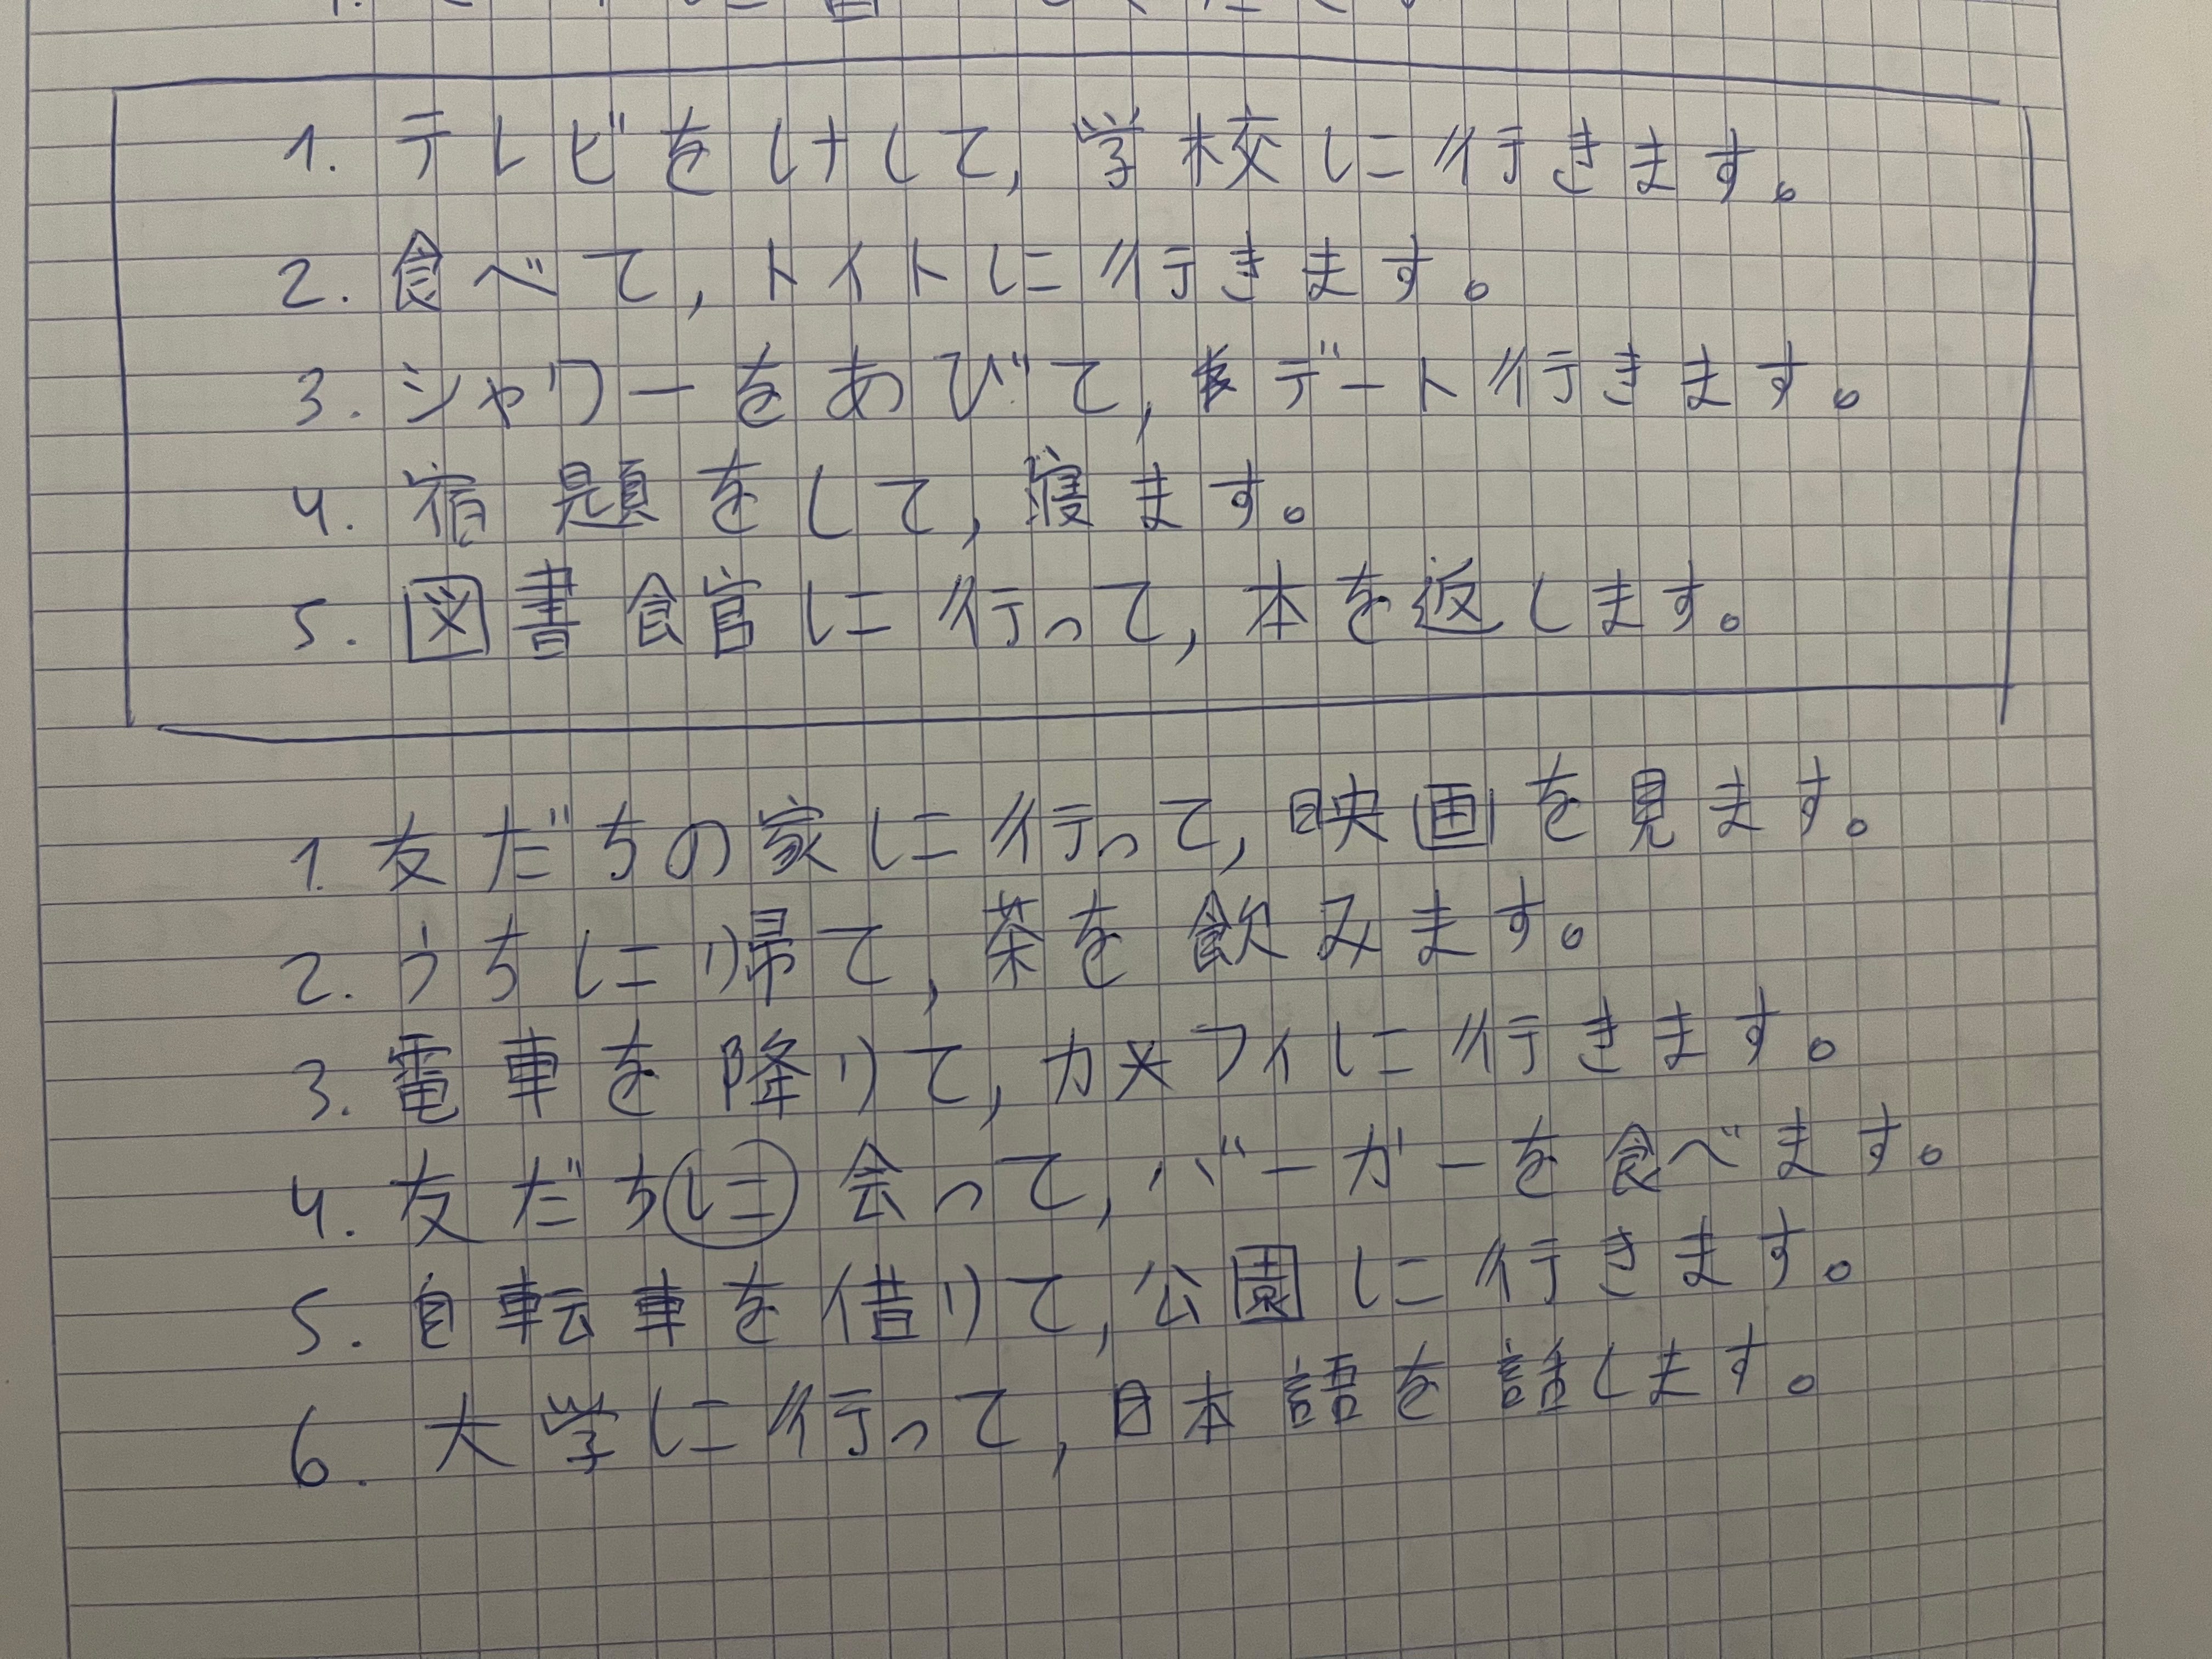 1. テレビをけして, 学校に行きます。
2. 食べて, トイトに行きます。
3. シャワーをあびて, デート行きます。
4. 宿題をして, 寝ます。
5. 図書館に行って, 本を返します。
1. 友だちの家に行って, 映画を見ます。
2. うちに帰て, 茶を飲みます。
3. 電車を降りて, カメフィに行きます。
4. 友だちに会って, バーガーを食べます。
5. 自転車を借りて, 公園に行きます。
6. 大学に行って, 日本語を話します。